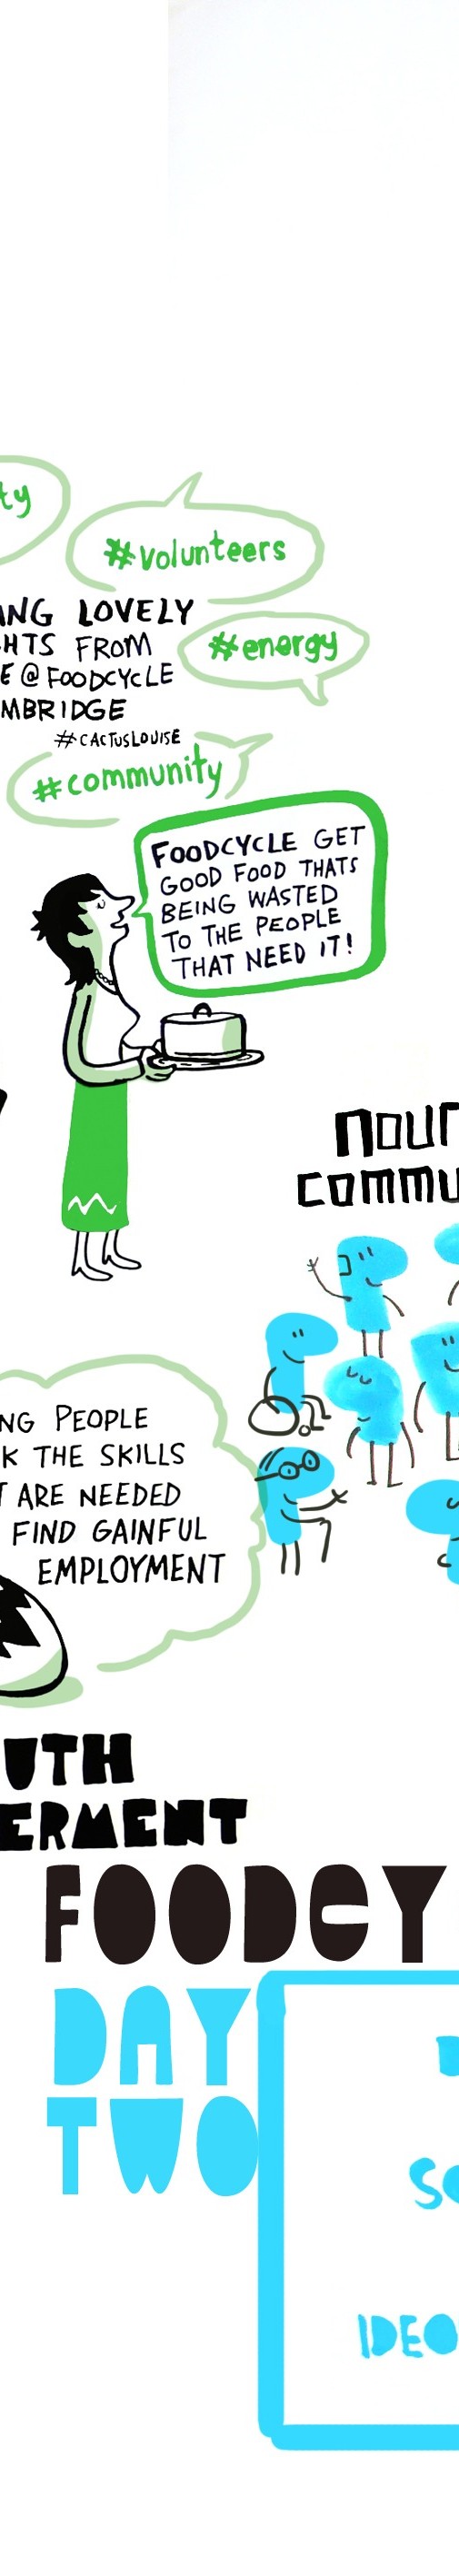 ty
#volunteers
ING LOVELY
HTS FROM
E @ FOODCYCLE
MBRIDGE
#CACTUSLOUISE
#energy
#community
FOODCYCLE GET
GOOD FOOD THATS
BEING WASTED
TO THE PEOPLE
THAT NEED IT!
NOUR
COMMU
NG PEOPLE
K THE SKILLS
T ARE NEEDED
FIND GAINFUL
EMPLOYMENT
UTH
ERMENT
FOODCY
DAY
TWO
SO
IDEO